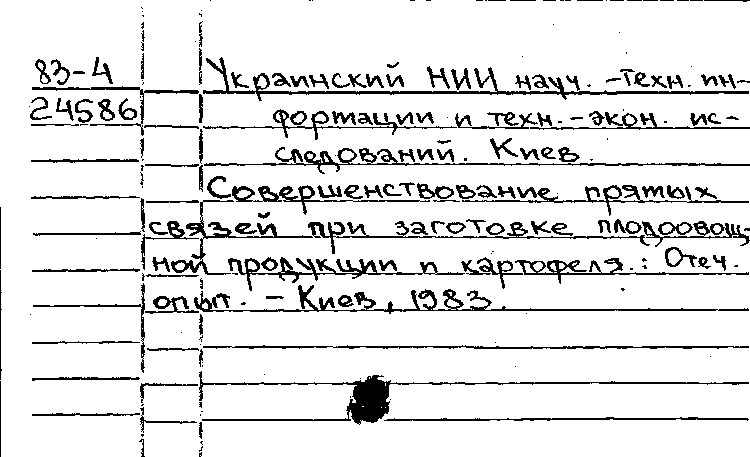 83-4 Украинский НИИ науч.-техн. ин-
24586 формации и техн.-экон. ис-
следований. Киев.
Совершенствование прямых
связей при заготовке плодоовощ-
ной продукции и картофеля.: Отеч.
опыт. - Киев, 1983.